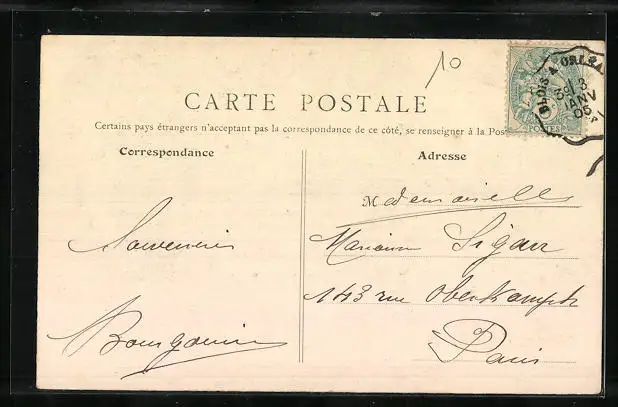 10
CARTE POSTALE
Certains pays étrangers n'acceptant pas la correspondance de ce côté, se renseigner à la Pos
Correspondance
Adresse
BLOIS A ORLÉA
3 JANV
05
POSTES
Mademoiselle
Souvenirs
143 rue Oberkampf
Paris